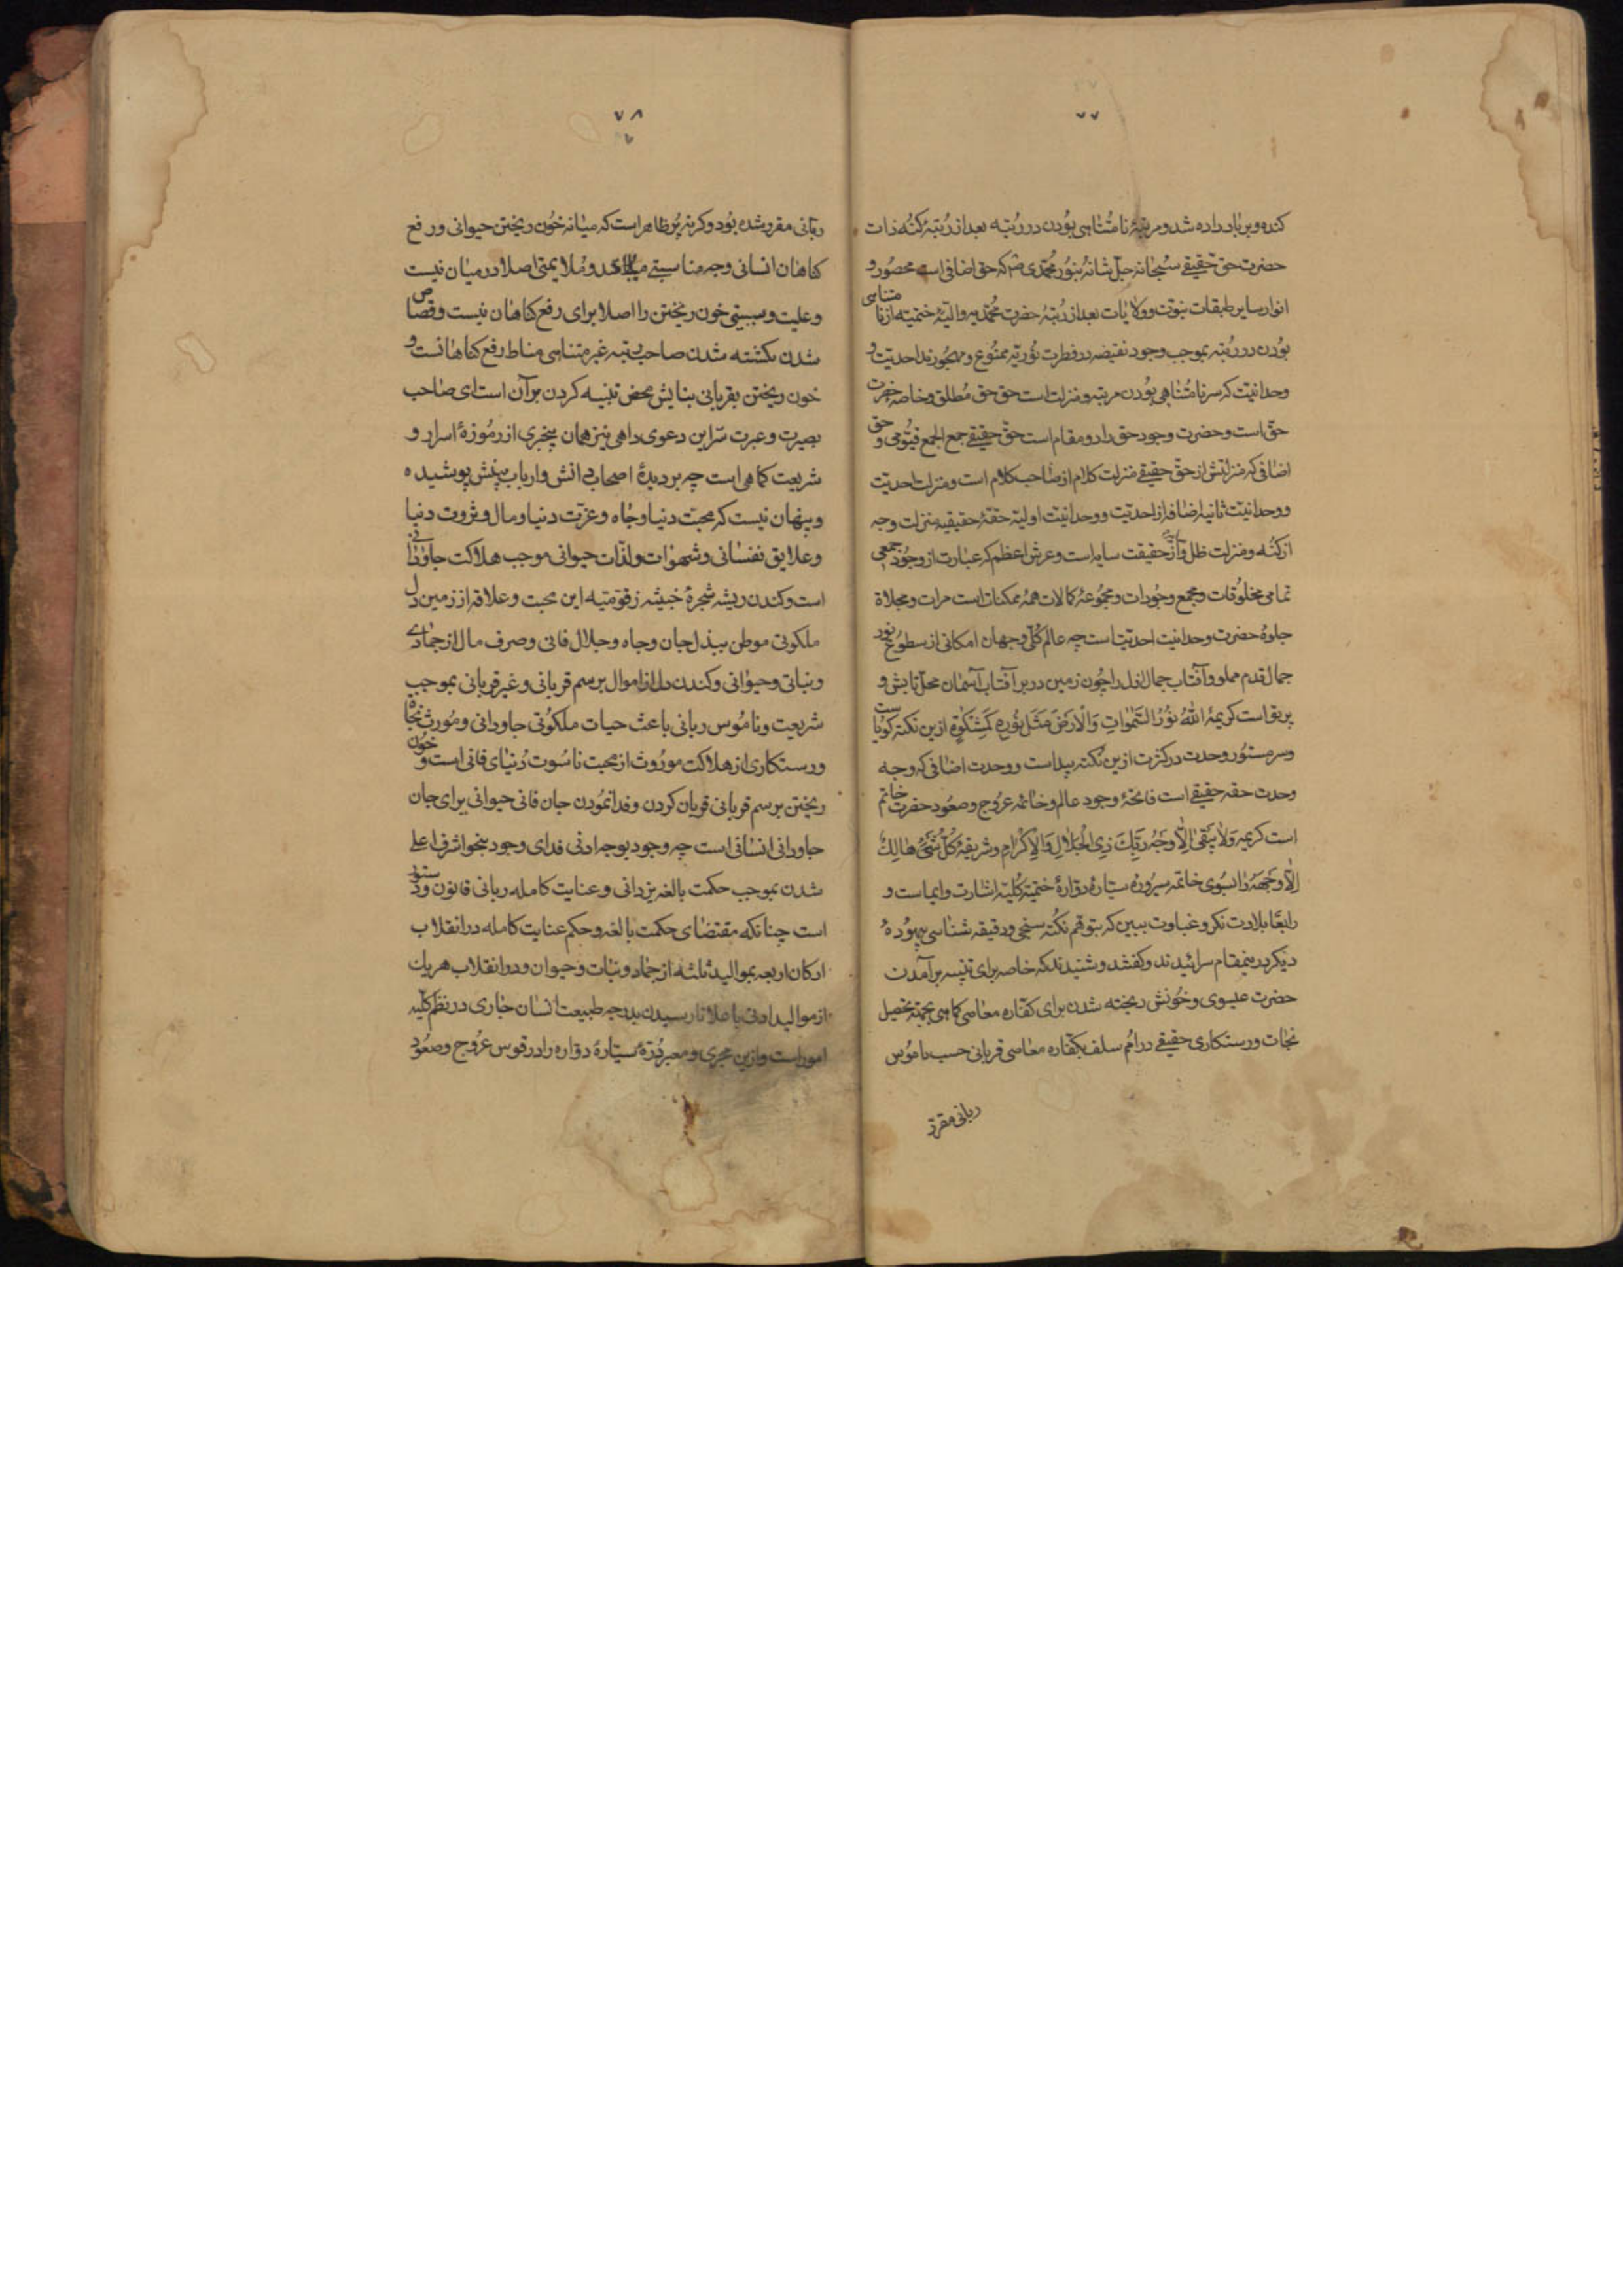 ۷۷
کنده و برباد داده شد و مرتبهٔ نامُتناهی بوُدن در رُتبه بعد از رُتبهٔ کُنه ذات
حضرت حق حقیقے سُبحانه جلّ شانهُ بنوُر محُمّدی ص که حق اضافی است محصوُر و
انوار سایر طبقات نبوّت و ولایات بعد از رُتبهٔ حضرت محُمّدیه والیهٔ ختمیّه از نا متناهی
بوُدن در رُتبه بموجب وجود نقیضه در فطرت نوُریّه ممنوُع و مهجوُرند احدیّت و
وحدانیّت که سر نامُتناهی بوُدن مرتبه و منزلت است حق حق مُطلق و خاصه حضرت
حق است و حضرت وجود حق دارد و مقام است حق حقیقے جمع الجمع قیّومی و حق
اضافی که منزلتش از حق حقیقے منزلت کلام از صاحب کلام است و منزلت احدیّت
و وحدانیّت ثانیه اضافه از احدیّت و وحدانیّت اولیّه حقهٔ حقیقیه بمنزلت وجه
از کُنه و منزلت ظل و از حقیقت سایه است و عرش اعظم که عبارت از وجوُد جمعی
تمامی مخلوُقات و مجمع وجوُدات و مجموُعهٔ کمالات همهٔ ممکنات است مرات و مجلاة
جلوهٔ حضرت وحدانیت احدیّت است چه عالم کُلّ و جهان امکانی از سطوُع نور
جمال قدم مملو و آفتاب جمال ازل را چوُن زمین در بر آفتاب آسمان محلّ تابش و
پریق است کریمهٔ اَللهُ نوُرُ السَّمٰواتِ وَالْاَرْضِ مَثَلُ نوُرِهِ کَمِشْکٰوةٍ ازین نکته کوُیاست
و سر مستوُر وحدت در کثرت ازین نکته پیداست و وحدت اضافی که وجه
وحدت حقه حقیقے است فاتحهٔ وجود عالم و خاتمهٔ عرُوج و صعوُد حضرت خاتم
است کریمه وَلاٰیَبْقیٰ اِلّاٰ وَجْهُ رَبِّكَ ذِی الْجَلاٰلِ وَالْاِکْرٰامِ و شریفهٔ کُلُّ شَیْئٍ هٰالِكٌ
اِلّاٰ وَجْهَهُ را بسوُی خاتمه سیروُرهٔ ستارهٔ دوّارهٔ ختمیّه کُلیّه اشارت و ایماست و
رابعًا بلادت نکر و غباوت ببین که بتوهّم نکُته سنجی و دقیقه شناسی بیهوُده
دیکر درینمقام سرائیدند و کفتند و شنیدند که خاصه برای تنبیه برآمدن
حضرت عیسوی و خوُنش ریخته شدن برای کفّاره معاصی کماهی بجهته تحصیل
نجات و رستکاری حقیقے در امُم سلف بکفّاره معاصی قربانی حسب ناموُس
ربانی مقرر
۷۸
۷
ربّانی مقرر شده بوُد و کرنه پُر ظاهر است که میانه خوُن ریختن حیوانی و رفع
کناهان انسانی وجه مناسبتے و مُلایمتی اصلا در میان نیست
و علیت و سببیتی خون ریختن را اصلا برای رفع کناهان نیست و قصاص
شدن بکشته شدن صاحب رتبه غیر متناهی مناط رفع کناهانست و
خون ریختن بقربانی بنایش محض تنبیه کردن بر آن است ای صاحب
بصیرت و عبرت سرّاین دعوی داهی نیز همان بیخبری از رموُزهٔ اسرار و
شریعت کماهی است چه بر دیدهٔ اصحاب دانش و ارباب بینش پوشیده
و پنهان نیست که محبّت دنیا و جاه و عزّت دنیا و مال و ثروت دنیا
و علایق نفسانی و شهوات و لذّات حیوانی موجب هلاکت جاودانی
است و کندن ریشه شجرهٔ خبیثه زقوّمیّه این محبت و علاقه از زمین دل
ملکوتی موطن ببذل جان و جاه و جلال فانی و صرف مال از جمادے
و نباتی و حیوانی و کندن دل از اموال برسم قربانی و غیر قربانی بموجب
شریعت و ناموُس ربانی باعث حیات ملکوُتی جاودانی و موُرث نجاة
و رستکاری از هلاکت موروُث از محبت ناسوُت دُنیای فانی است و خوُن
ریختن برسم قربانی قربان کردن و فدا نموُدن جان فانی حیوانی برای جان
جاودانی انسانی است چه وجود بوجه ادنی فدای وجود بنحو اشرف اعلے
شدن بموجب حکمت بالغه یزدانی و عنایت کامله ربانی قانون و دستور
است چنانکه مقتضای حکمت بالغه و حکم عنایت کامله در انقلاب
ارکان اربعه بموالید ثلثه از جماد و نبات و حیوان و در انقلاب هریك
از موالید ادنی باعلا تا رسیدن بدرجه طبیعت انسان جاری در نظم کلّیه
امور است و ازین مجری و معبر ذرّهٔ سیّارهٔ دوّاره را در قوس عرُوج و صعوُد